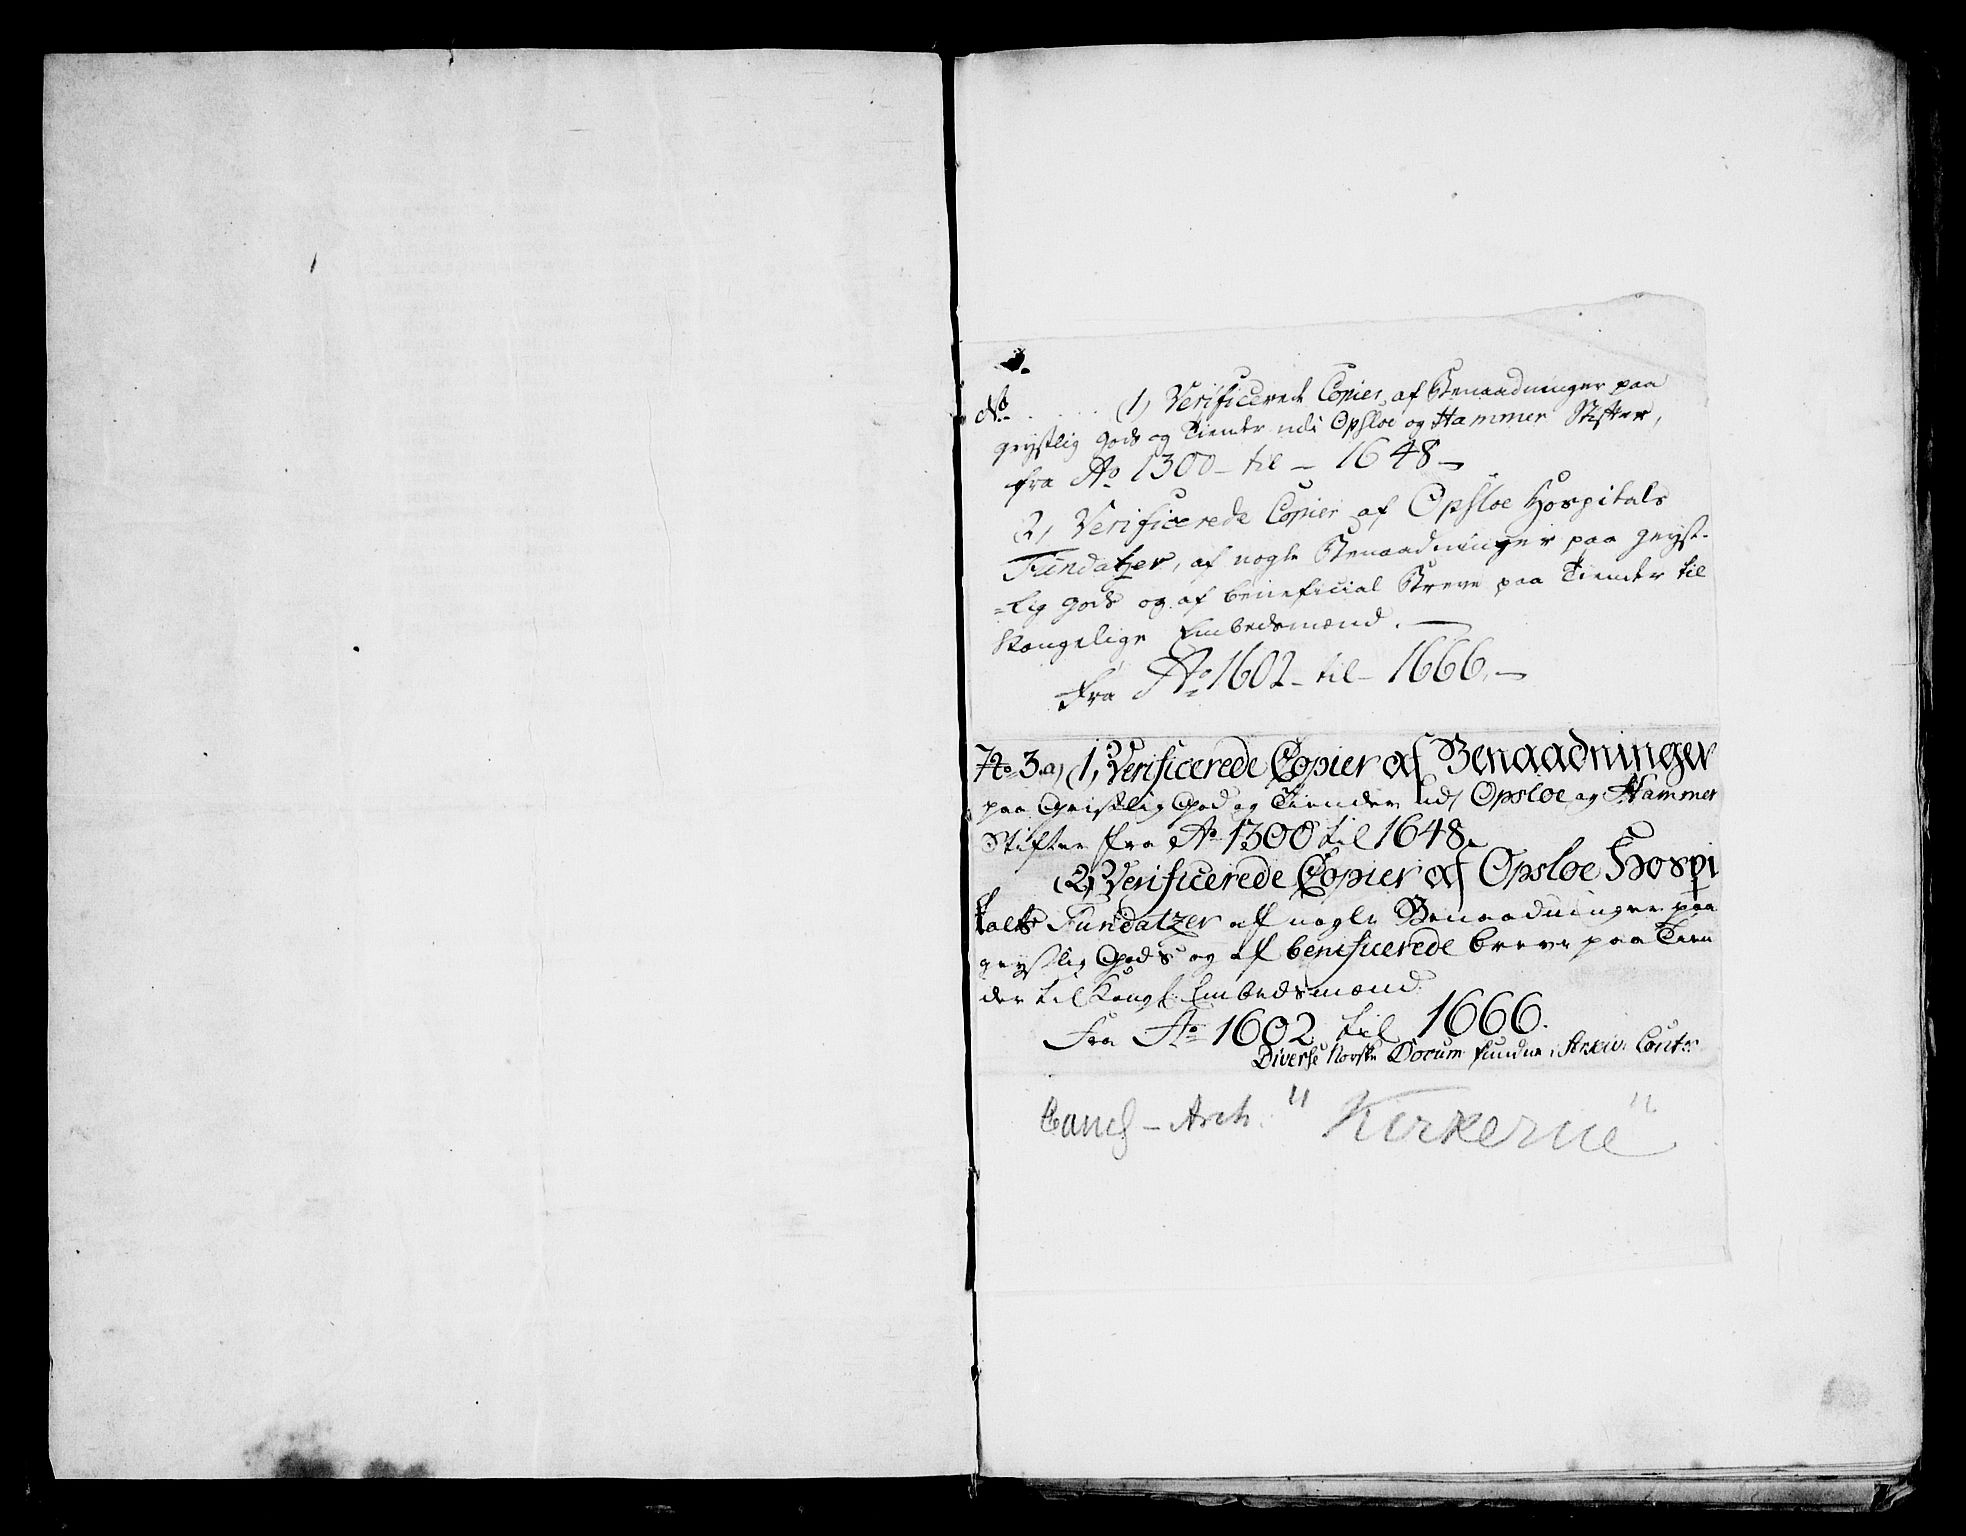 No. . . . . (1, Verificerede Copier af Benaadninger paa
geystlig gods og Tiender udi Opsloe og Hammer Stifter,
fra Ao 1300 - til - 1648 -
(2, Verificerede Copier af Opsloe Hospitals
Fundatzer, af nogle Benaadninger paa geyst-
=lig gods og af beneficial Breve paa Tiender til
Kongelige Embedsmænd. -
fra Ao 1602 - til - 1666. -
No 3.a, (1, Verificerede Copier af Benaadninger
paa Geistlig God og Tiender udj Opsloe og Hammer
Stifter fra Ao 1300 til 1648.
(2, Verificerede Copier af Opsloe Hospi
talts Fundatzer af nogle Benaadninger paa
geystlig Gods og af benificerede breve paa Tien
der til Kongl. Embedsmænd.
Fra Ao 1602 til 1666.
Diverse Norske Docum fundne i Arkiv. Cont:
Canc - Arch. "Kirkerne"